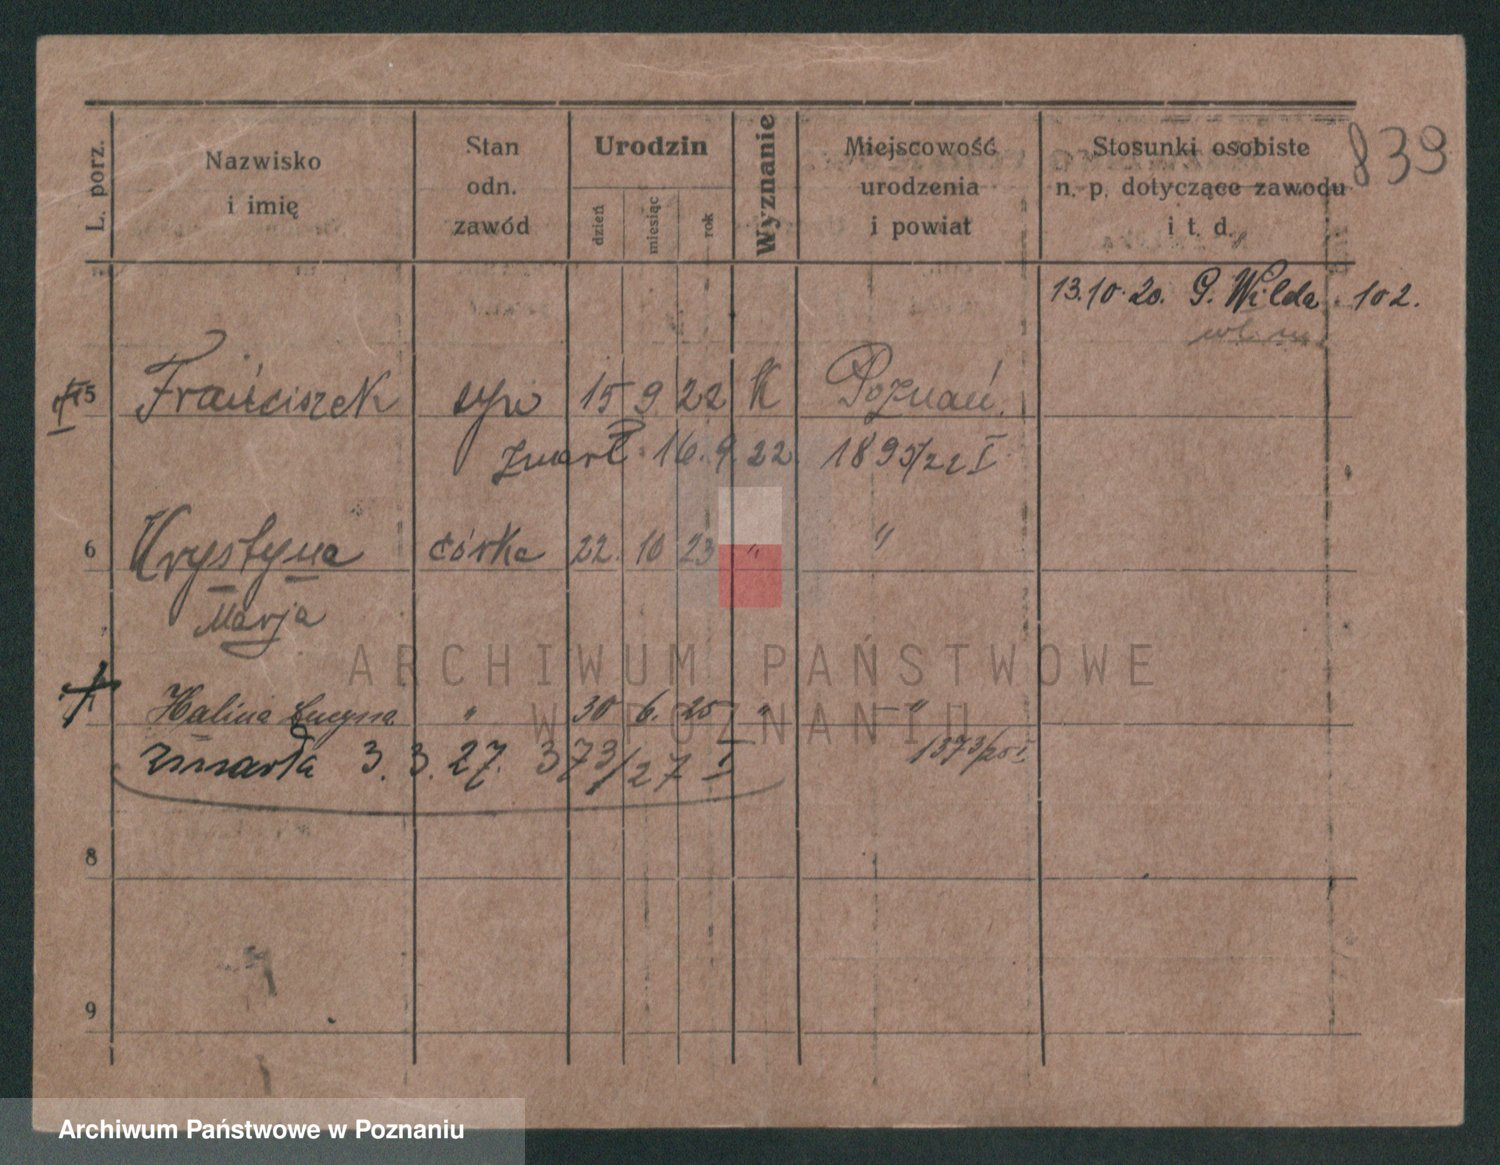 839
L. porz.
Nazwisko i imię
Stan odn. zawód
Urodzin
dzień
miesiąc
rok
Wyznanie
Miejscowość urodzenia i powiat
Stosunki osobiste n. p. dotyczące zawodu i t. d.
13.10.20. G. Wilda 102.
5 Franciszek syn 15 9 22 K Poznań
zmarł 16. 9. 22 1895/22 I
6 Krystyna córka 22. 10 23 " "
Marja
Halina Lucyna " 30 6. 25 " "
zmarła 3. 3. 27. 373/27 I 1373/25 I
8
9
ARCHIWUM PAŃSTWOWE
W POZNANIU
Archiwum Państwowe w Poznaniu